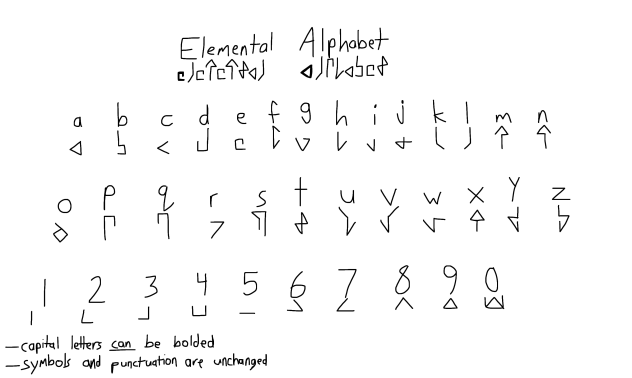 Elemental Alphabet
a b c d e f g h i j k l m n
o p q r s t u v w x y z
1 2 3 4 5 6 7 8 9 0
—capital letters can be bolded
—symbols and punctuation are unchanged